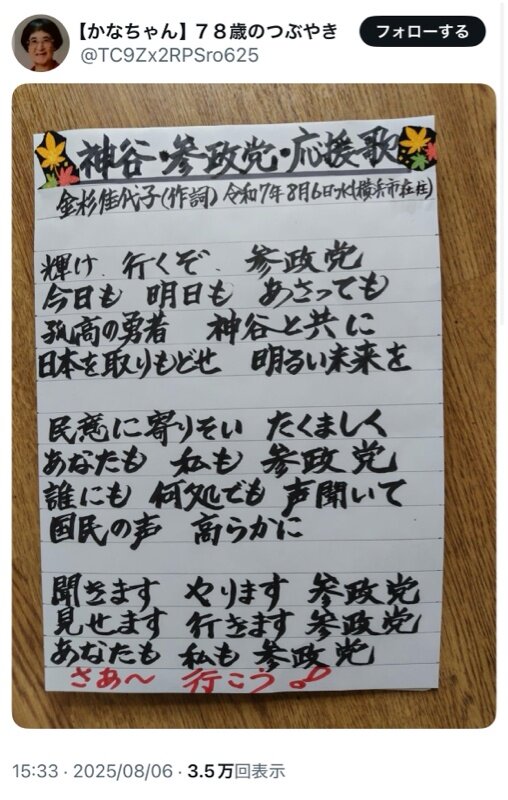 【かなちゃん】７８歳のつぶやき
@TC9Zx2RPSro625
フォローする
神谷・参政党・応援歌
金杉佳代子(作詞) 令和7年8月6日水(横浜市在住)
輝け、行くぞ、参政党
今日も 明日も あさっても
孤高の勇者 神谷と共に
日本を取りもどせ 明るい未来を
民意に寄りそい たくましく
あなたも 私も 参政党
誰にも 何処でも 声聞いて
国民の声 高らかに
聞きます やります 参政党
見せます 行きます 参政党
あなたも 私も 参政党
さあ〜 行こう!!
15:33 · 2025/08/06 · 3.5万回表示